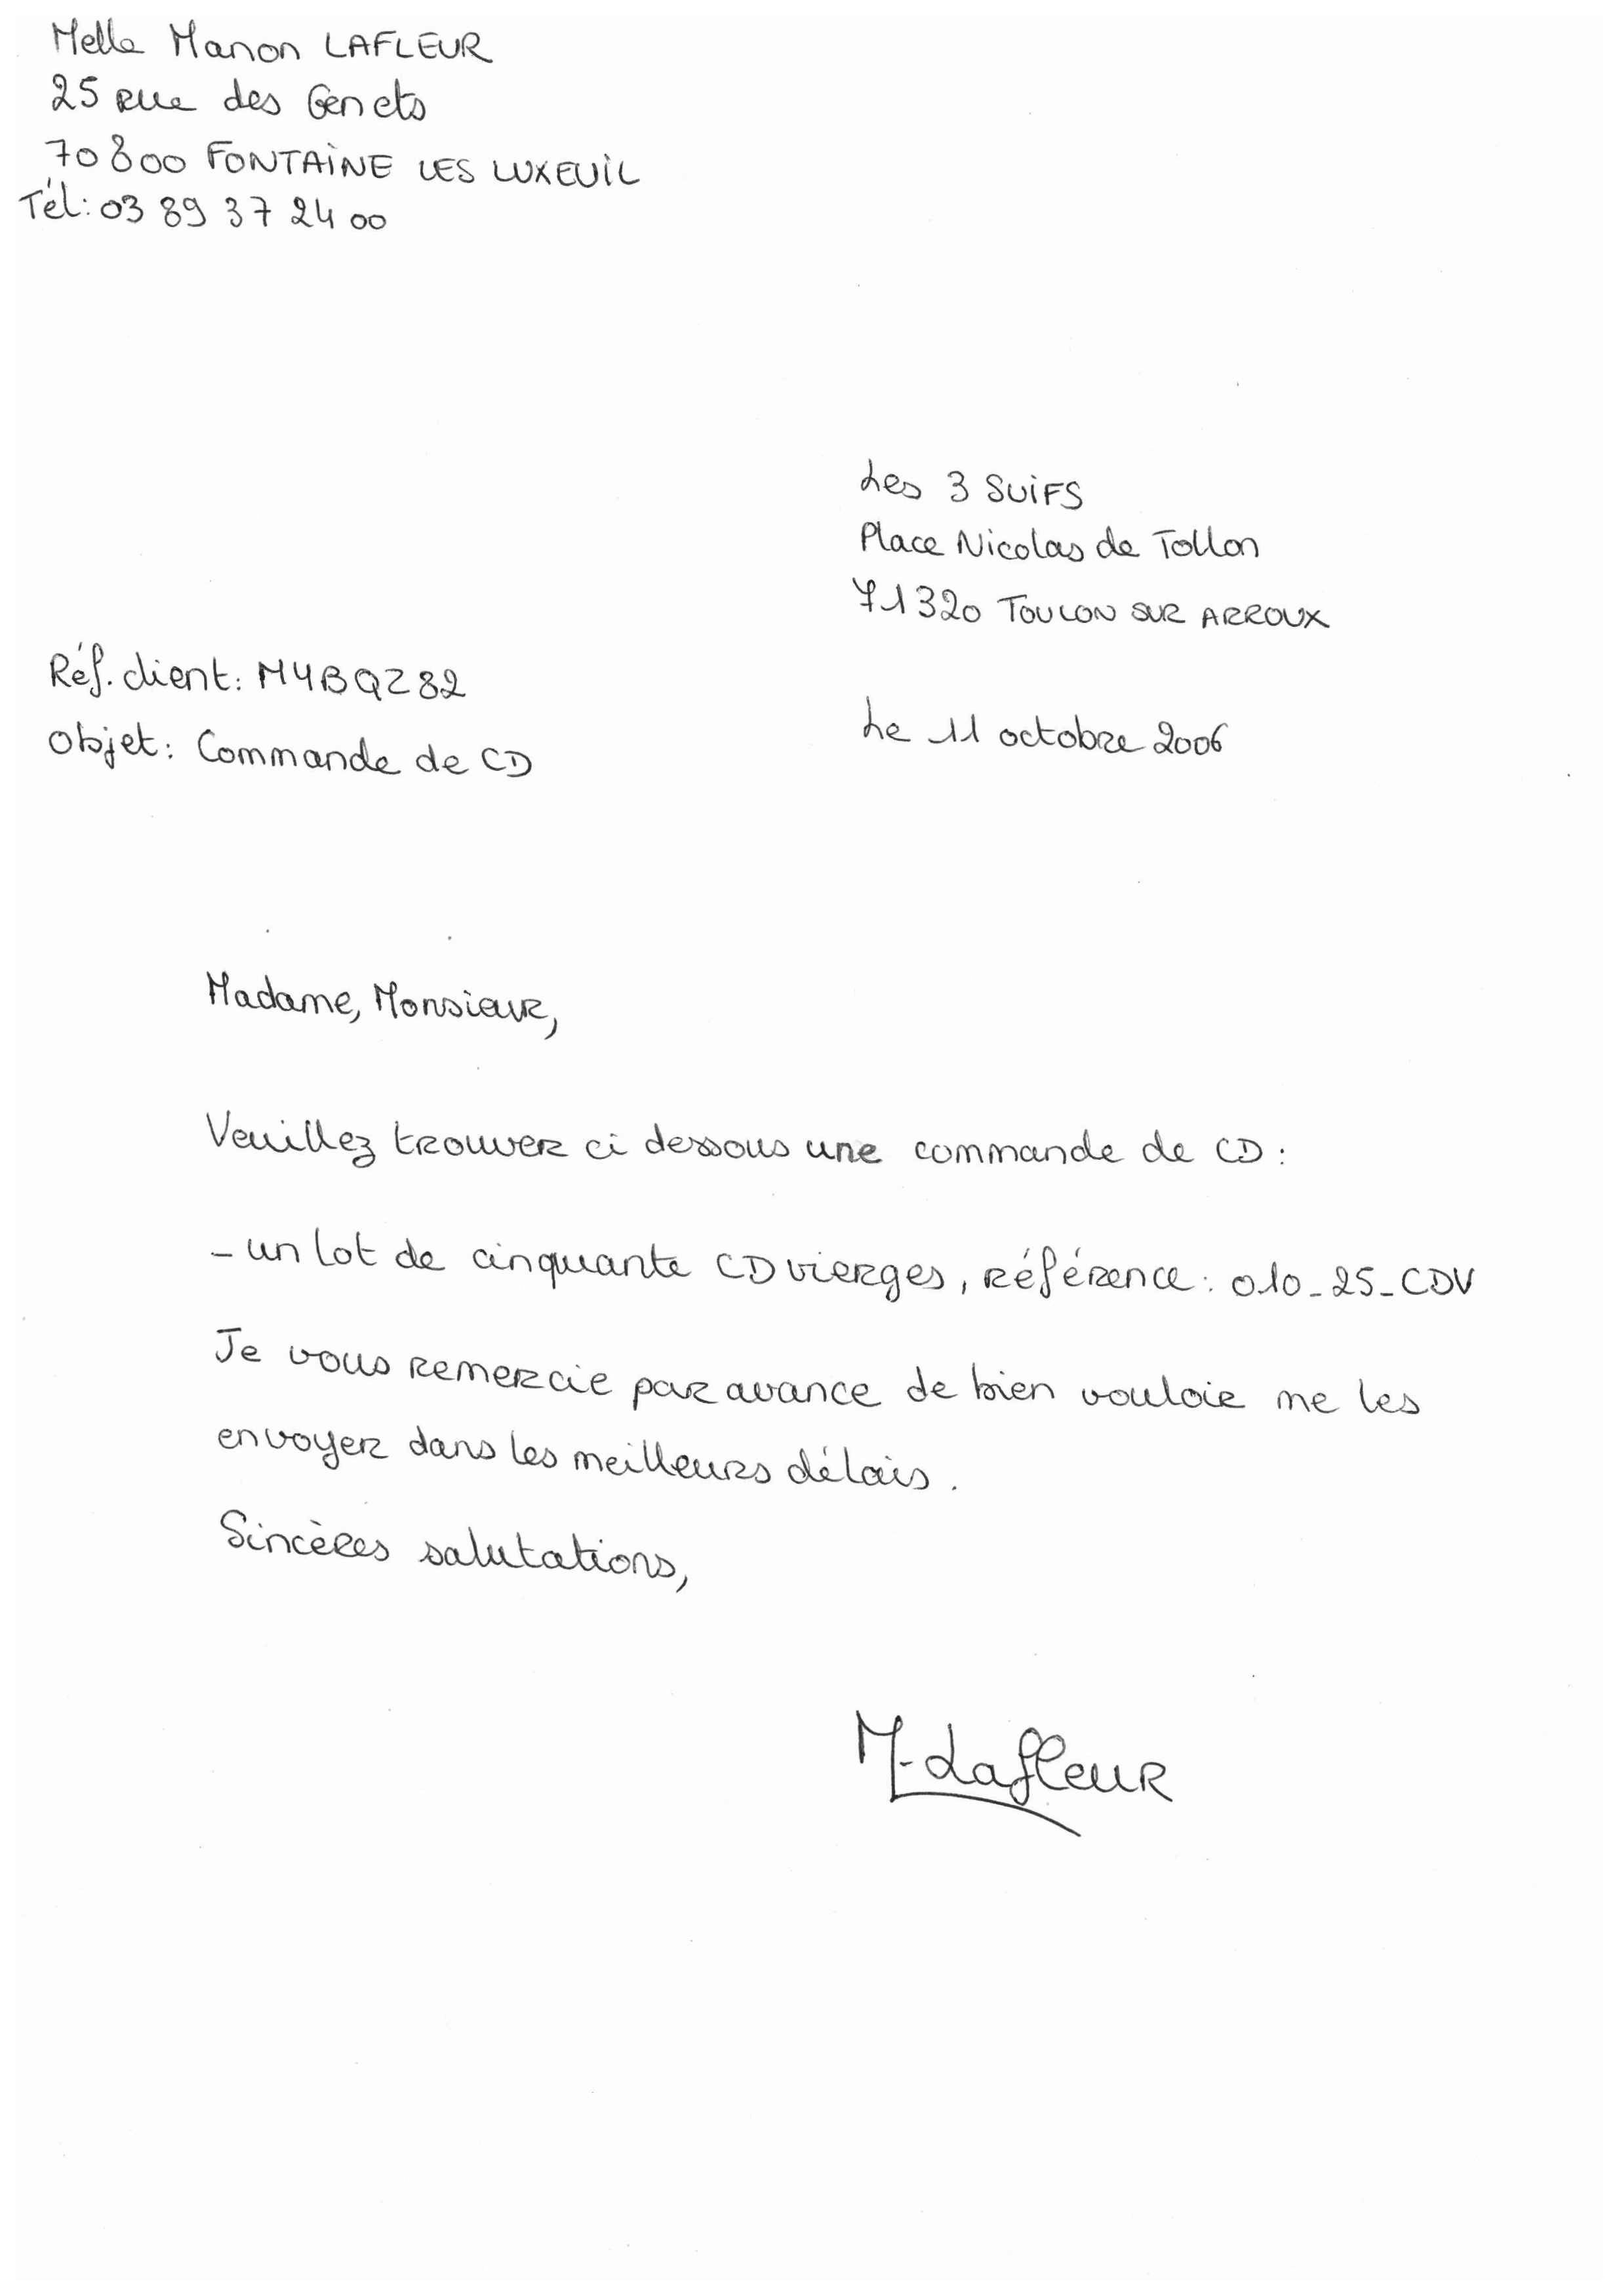 Melle Manon LAFLEUR
25 rue des Genets
70800 FONTAINE LES LUXEUIL
Tél: 03 89 37 24 00
Les 3 SUIFS
Place Nicolas de Tollon
71320 TOULON SUR ARROUX
Réf. client: M4BQZ82
Objet: Commande de CD
Le 11 octobre 2006
Madame, Monsieur,
Veuillez trouver ci dessous une commande de CD:
- un lot de cinquante CD vierges, référence: 010_25_CDV
Je vous remercie par avance de bien vouloie me les
envoyer dans les meilleurs délais.
Sincères salutations,
M. Lafleur